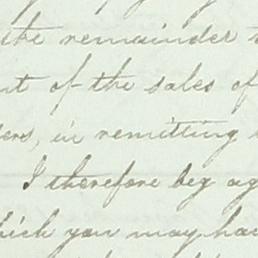 the remainder
of the sales of
in remitting
I therefore beg
which you may